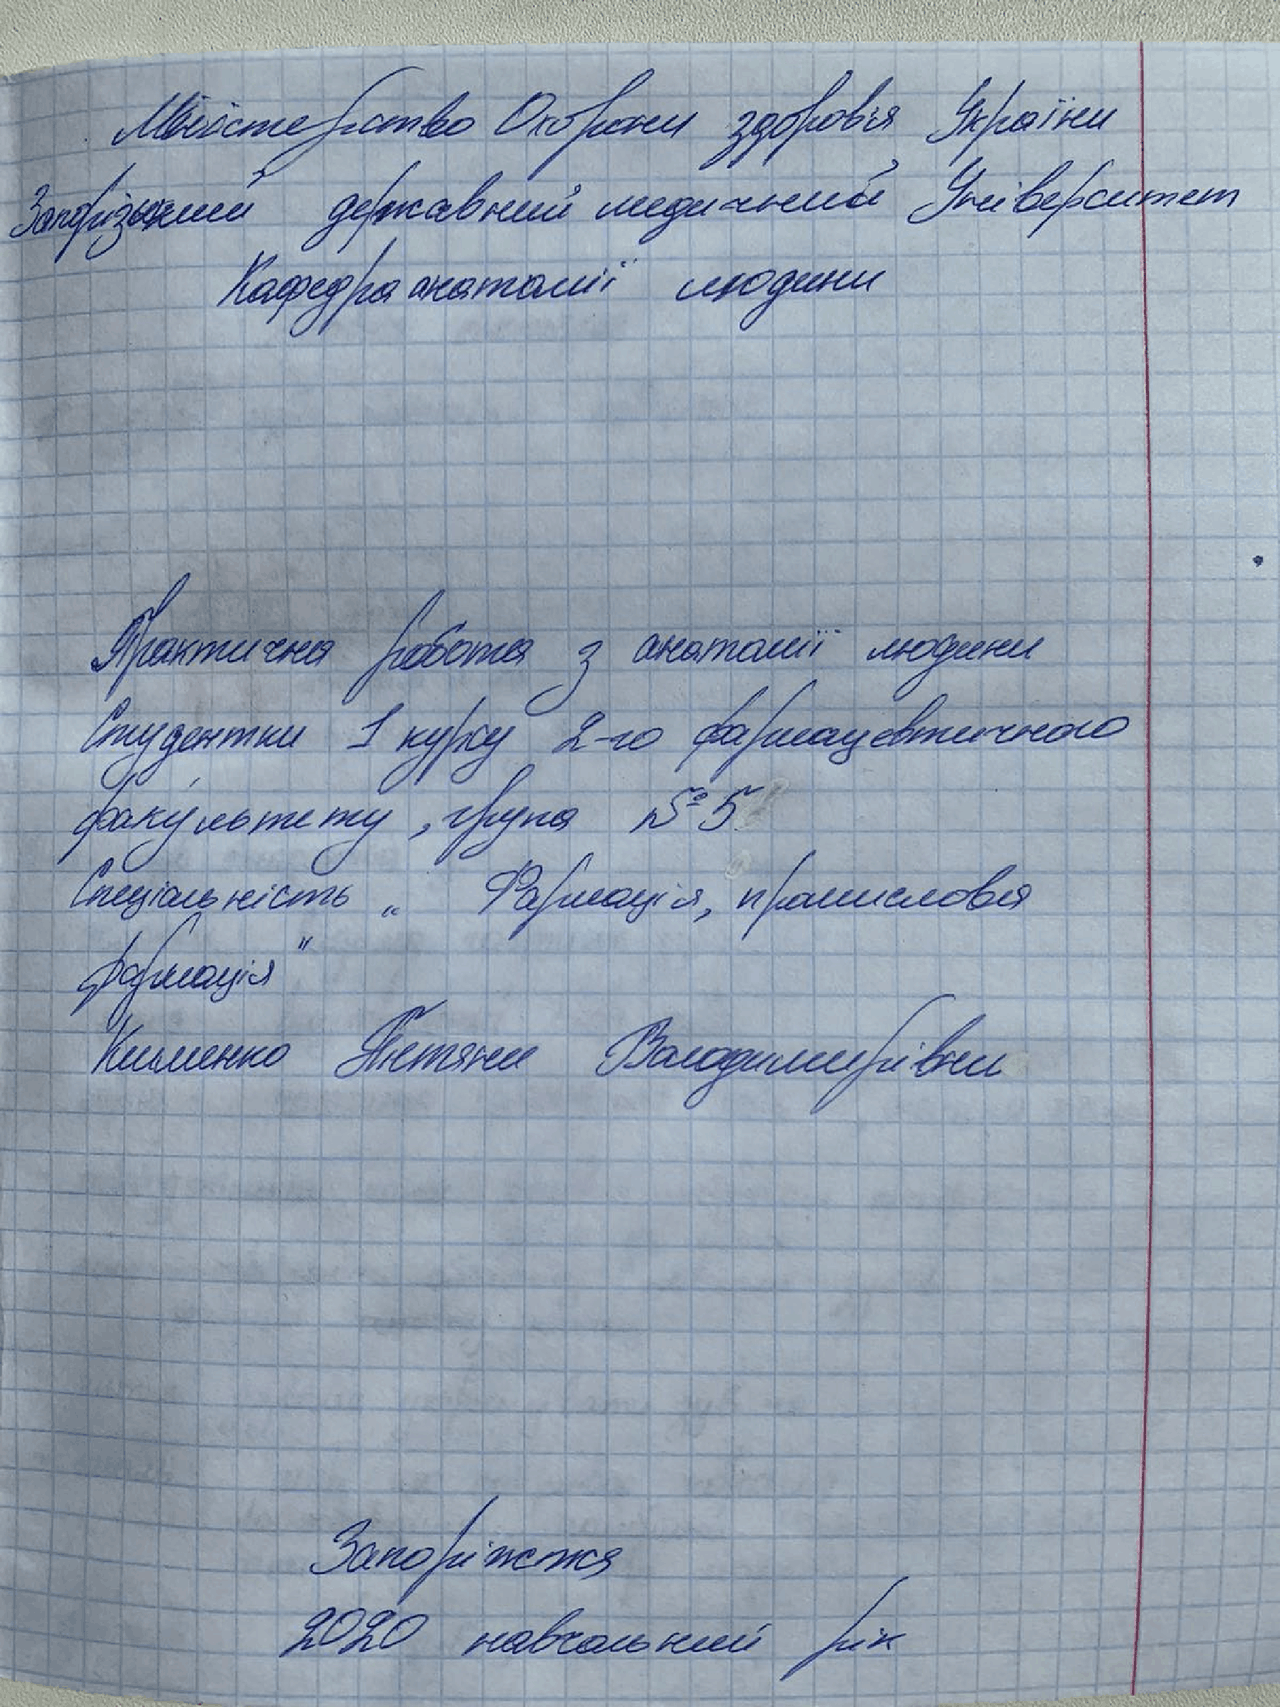 Міністерство Охорони здоров'я України
Запорізький державний медичний Університет
Кафедра анатомії людини
Практична робота з анатомії людини
Студентки 1 курсу 2-го фармацевтичного
факультету, група №5
Спеціальність „ Фармація, промислова
фармація"
Клименко Тетяни Володимирівни
Запоріжжя
2020 навчальний рік